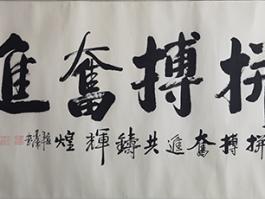 拼搏奮進
拼搏奮進共鑄輝煌